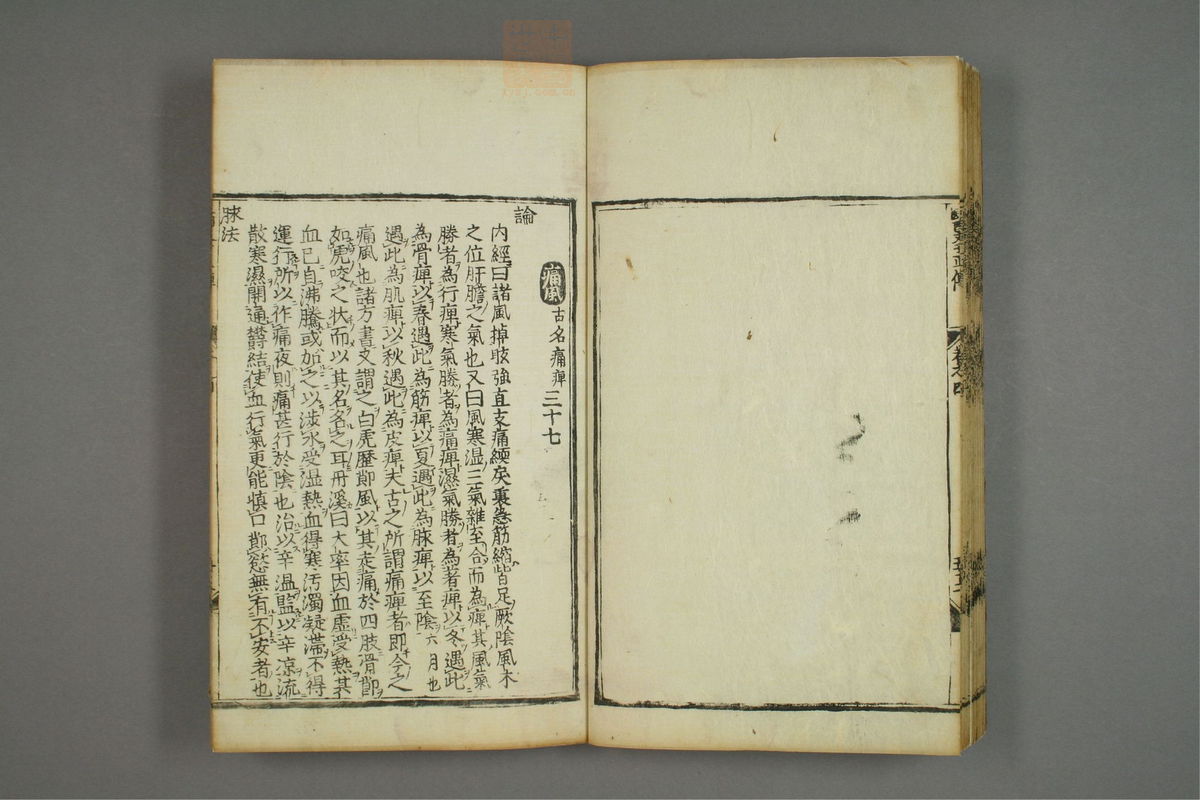 痛風古名痛痺三十七
論
内經曰諸風掉眩強直支痛緛戾裏急筋縮皆足厥陰風木
之位肝膽之氣也又曰風寒湿三氣雜至合而為痺其風氣
勝者為行痺寒氣勝者為痛痺濕氣勝者為著痺以冬遇此
為骨痺以春遇此為筋痺以夏遇此為脉痺以至陰六月也
遇此為肌痺以秋遇此為皮痺夫古之所謂痛痺者即今之
痛風也諸方書又謂之白虎歷節風以其走痛於四肢骨節
如虎咬之状而以其名名之耳丹溪曰大率因血虛受熱其
血已自沸騰或加之以涉水受湿熱血得寒汚濁凝滯不得
運行所以作痛夜則痛甚行於陰也治以辛温監以辛凉流
散寒濕開通欝結使血行氣更能慎口節慾無有不安者也
脉法